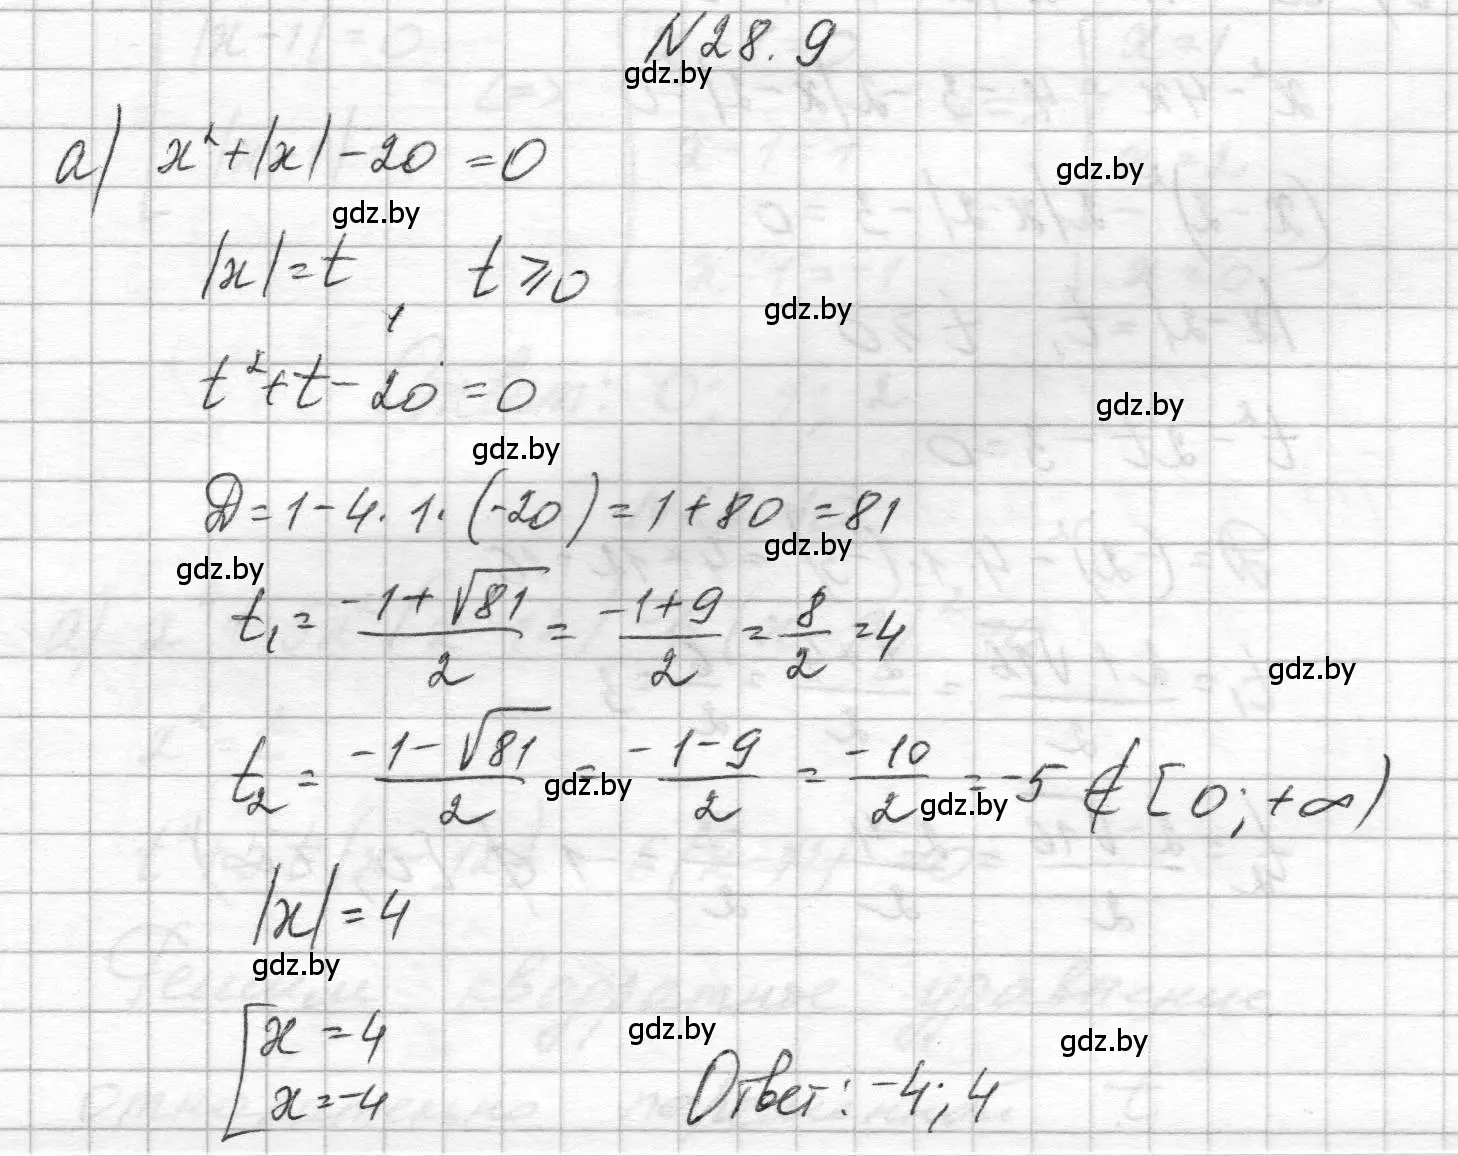 N28.9
gdz.by
а) x²+|x|-20=0
gdz.by
gdz.by
|x|=t, t⩾0
gdz.by
t²+t-20=0
gdz.by
gdz.by
D=1-4·1·(-20)=1+80=81
gdz.by
gdz.by
t₁=(-1+√81)/2=(-1+9)/2=8/2=4
gdz.by
t₂=(-1-√81)/2=(-1-9)/2=-10/2=-5∉[0;+∞)
gdz.by
gdz.by
|x|=4
gdz.by
[x=4
gdz.by
gdz.by
x=-4
Ответ: -4; 4